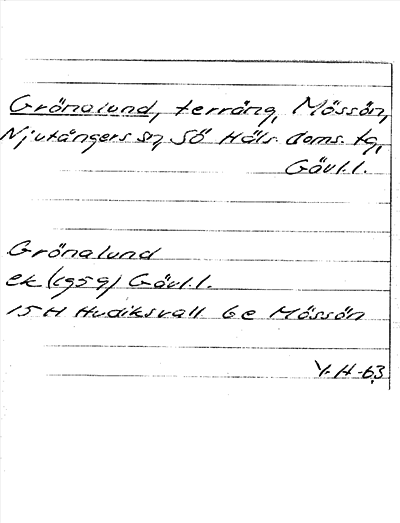 Grönalund, terräng, Mössön,
Njutångers sn, Sö Häls. doms. tg,
Gävl.l.
Grönalund
ek (1959) Gävl.l.
15H Hudiksvall 6e Mössön
Y. H-63